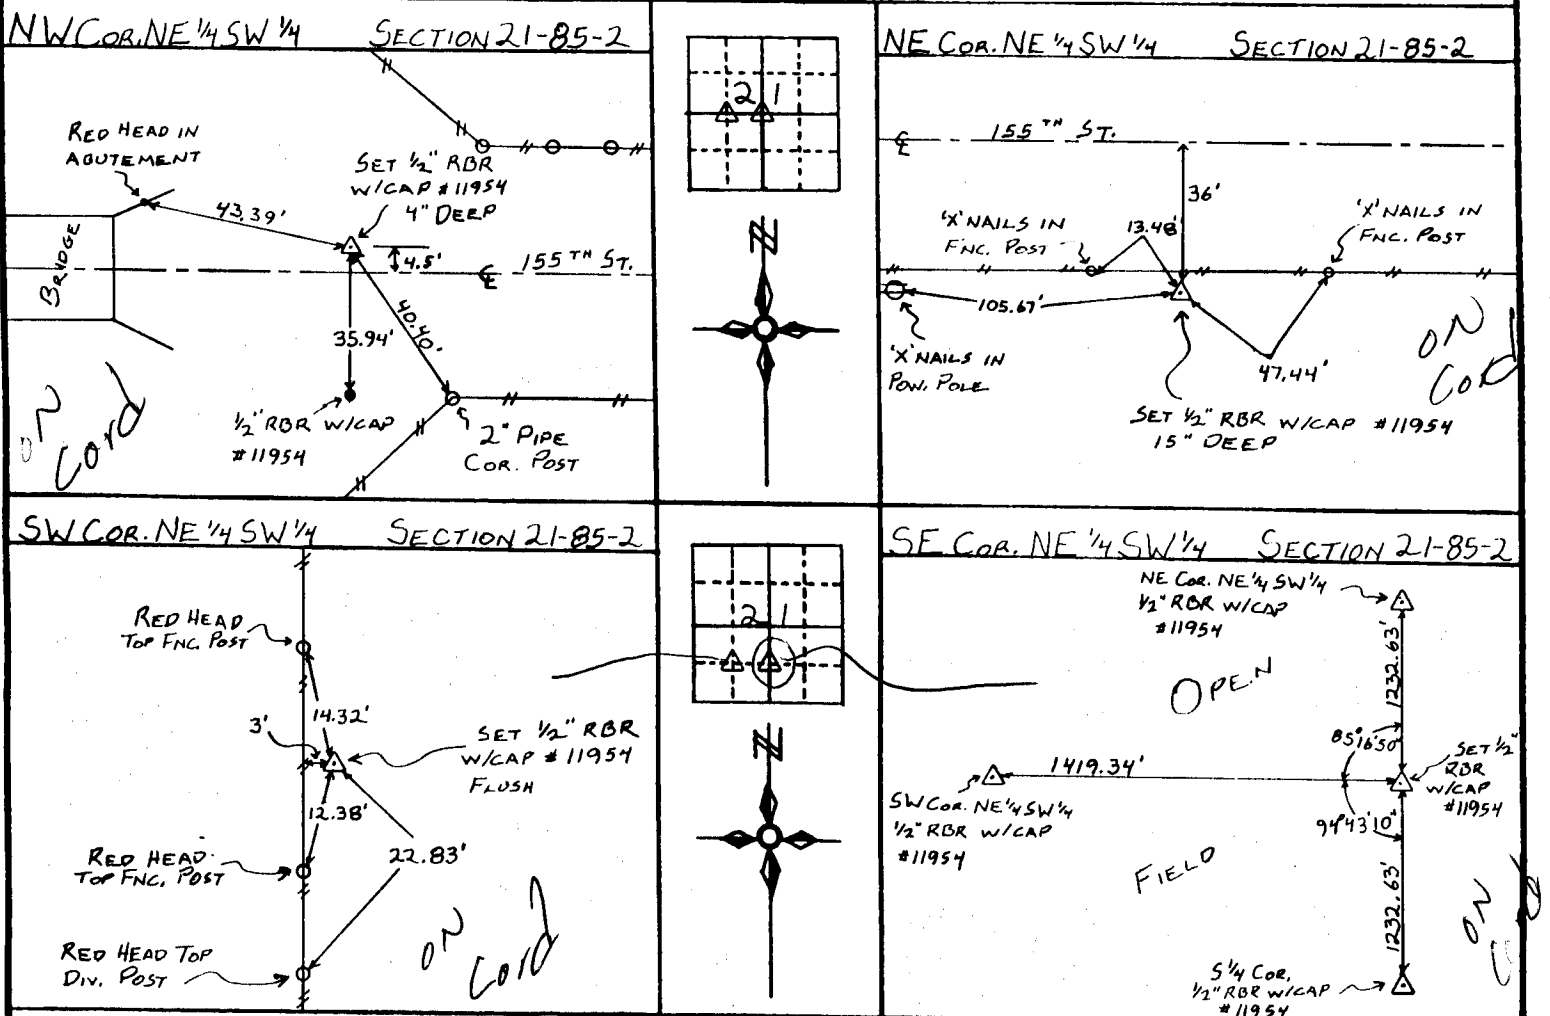 NW COR. NE 1/4 SW 1/4 SECTION 21-85-2
RED HEAD IN
ABUTEMENT
SET 1/2" RBR
W/CAP #11954
4" DEEP
43.39'
4.5'
BRIDGE
℄ 155 TH ST.
40.40'
35.94'
1/2" RBR W/CAP
#11954
2" PIPE
COR. POST
ON
Cord
2 1
N
NE COR. NE 1/4 SW 1/4 SECTION 21-85-2
℄ 155 TH ST.
36'
'X' NAILS IN
FNC. POST
13.48'
'X' NAILS IN
FNC. POST
105.67'
'X' NAILS IN
POW. POLE
47.44'
SET 1/2" RBR W/CAP #11954
15" DEEP
ON
Cord
SW COR. NE 1/4 SW 1/4 SECTION 21-85-2
RED HEAD
TOP FNC. POST
14.32'
3'
SET 1/2" RBR
W/CAP #11954
FLUSH
12.38'
22.83'
RED HEAD
TOP FNC. POST
RED HEAD TOP
DIV. POST
ON
Cord
2 1
N
SE COR. NE 1/4 SW 1/4 SECTION 21-85-2
NE COR. NE 1/4 SW 1/4
1/2" RBR W/CAP
#11954
1232.63'
OPEN
85°16'50"
1419.34'
SET 1/2"
RBR
W/CAP
#11954
SW COR. NE 1/4 SW 1/4
1/2" RBR W/CAP
#11954
94°43'10"
FIELD
1232.63'
ON
S 1/4 COR.
1/2" RBR W/CAP
#11954